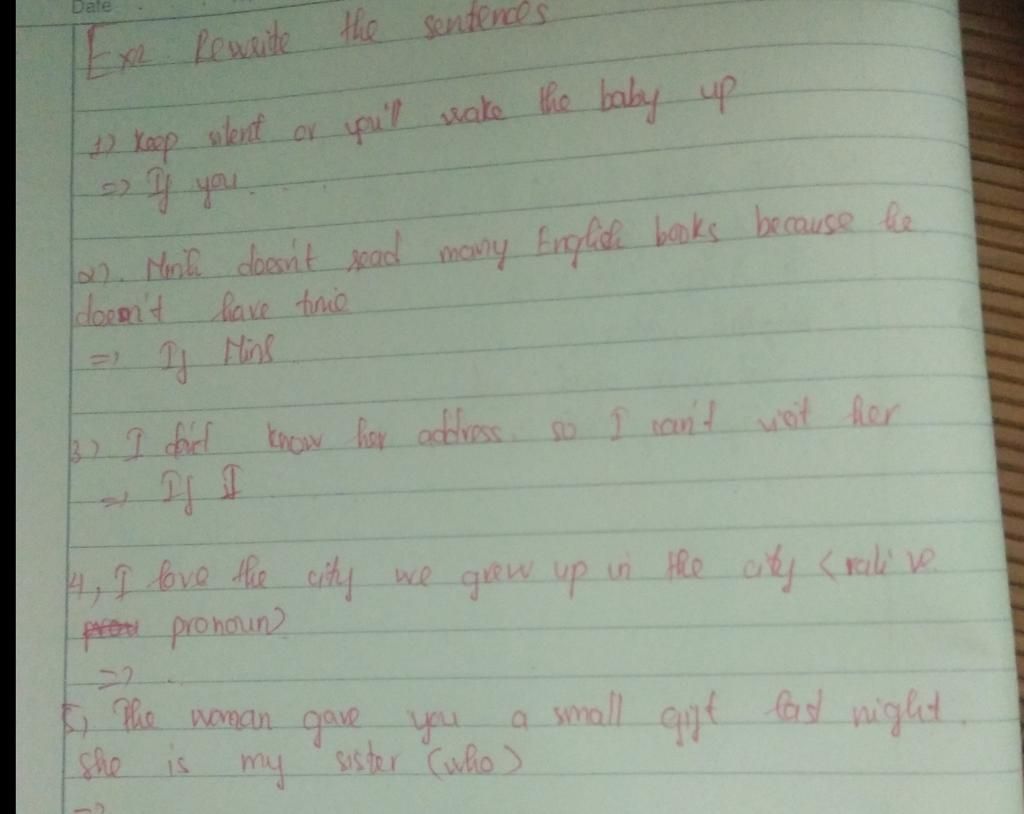 Date
Ex2 Rewrite the sentences
1) Keep silent or you'll wake the baby up
=> If you.
2). Minh doesn't read many English books because he
doesn't have time
=> If Minh
3) I don't know her address. so I can't visit her
=> If I
4, I love the city we grew up in the city <relative
pronoun>
=> .
5, The woman gave you a small gift last night.
she is my sister (who)
=>